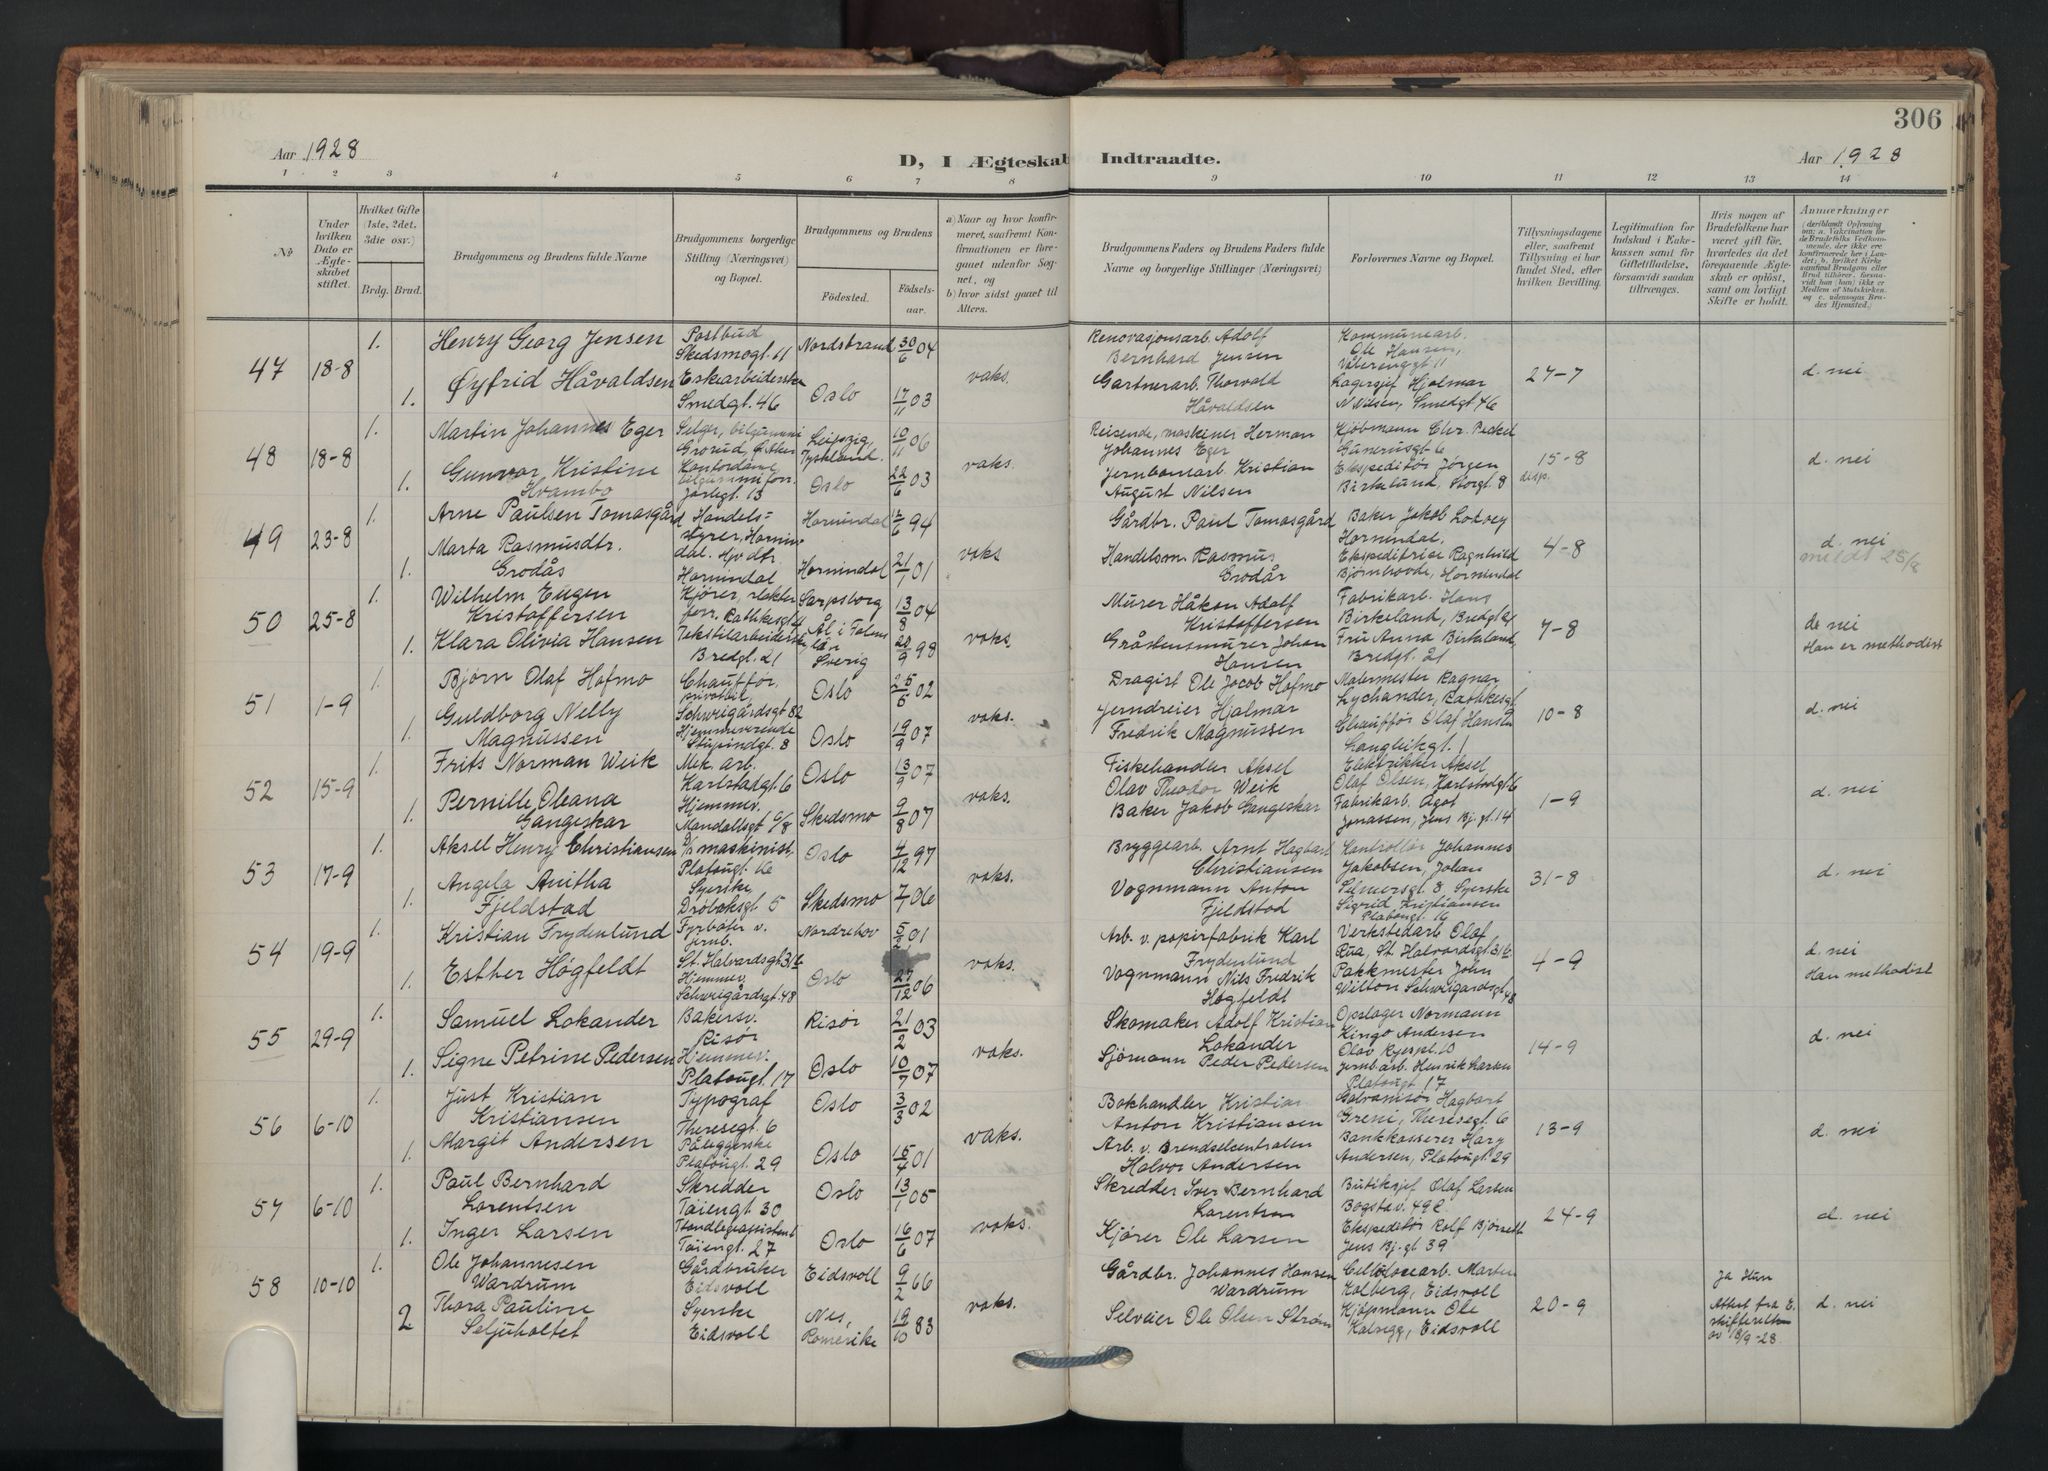 306
Aar 1928
D, I Ægteskab Indtraadte.
Aar 1928
1 2 3 4 5 6 7 8 9 10 11 12 13 14
№
Under hvilken Dato er Ægteskabet stiftet.
Hvilket Gifte (1ste, 2det, 3die osv.)
Brdg. Brud.
Brudgommens og Brudens fulde Navne
Brudgommens borgerlige Stilling (Næringsvei) og Bopæl.
Brudgommens og Brudens
Fødested. Fødselsaar.
a) Naar og hvor konfirmeret, saafremt Konfirmationen er foregaaet udenfor Sognet, og
b) hvor sidst gaaet til Alters.
Brudgommens Faders og Brudens Faders fulde Navne og borgerlige Stillinger (Næringsvei)
Forlovernes Navne og Bopæl.
Tillysningsdagene eller, saafremt Tillysning ei har fundet Sted, efter hvilken Bevilling.
Legitimation for Indskud i Enkekassen samt for Giftetilladelse, forsaavidt saadan tiltrænges.
Hvis nogen af Brudefolkene har været gift før, hvorledes da det foregaaende Ægteskab er opløst, samt om lovligt Skifte er holdt.
Anmærkninger
47 18-8 1. Henry Georg Jensen Postbud Skedsmogt. 11 Nordstrand 30/6 04 vaks. Renovasjonsarb. Adolf Bernhard Jensen Kommunearb. Ole Hansen, Vålerenggt 11 27-7 d. nei
1. Øyfrid Håvaldsen Eskearbeiderske Smedgt. 46 Oslo 17/11 03 Gartnerarb. Thorvald Håvaldsen Lagersjef Hjalmar N Nilsen, Smedgt 46
48 18-8 1. Martin Johannes Eger Selger, bilgummi Grorud, Ø. Aker Leipzig, Tyskland. 10/11 06 vaks. Reisende, maskiner Herman Johannes Eger Kjøbmann Chr. Peckel Gunerusgt 6 15-8 disp. d. nei
1. Gunvor Kristine Hvambo Kontordame bilgummiforr. Jarlegt. 13 Oslo 22/6 03 Jernbanearb Kristian August Nilsen Ekspeditør Jørgen Birkelund, Storgt. 8
49 23-8 1. Arne Paulsen Tomasgård Handelsstyrer, Hornindal. Hornindal 12/6 94 vaks Gårdbr. Paul Tomasgård Baker Jakob Lotvey Hornindal. 4-8 d. nei meldt 25/8
1. Marta Rasmusdtr. Grodås Hpv dtr. Hornindal Hornindal 21/1 01 Handelsm Rasmus Grodås Ekspeditrise Ragnhild Bjørnhovde, Hornindal
50 25-8 1. Wilhelm Eugen Kristoffersen Kjører, slakter forr. Rathkesgt Sarpsborg 13/8 04 vaks. Murer Håkon Adolf Kristoffersen Fabrikarb. Hans Birkeland, Bredgt 21 7-8 d. nei Han er methodist
1. Klara Olivia Hansen Tekstilarbeiderske, Bredgt. 21 Ål i Falns län Sverig 20/9 98 Gråstensmurer Johan Hansen Fru Anna Birkeland, Bredgt. 21
51 1-9 1. Bjørn Olaf Hofmo Chauffør, privatbil Schweigårdsgt 82 Oslo 25/5 02 vaks. Dragist Ole Jacob Hofmo Malermester Ragnar Lychander, Rathkesgt 10-8 d. nei
1. Guldborg Nelly Magnussen Hjemmeværende Stupindgt. 8 Oslo 19/9 07 Jerndreier Hjalmar Fredrik Magnussen Chauffør Olaf Hansen Langleikgt. 1
52 15-9 1. Frits Norman Weik Mek. arb. Karlstadgt 6 Oslo 13/9 07 vaks. Fiskehandler Aksel Olav Theodor Weik Elektrikker Aksel Olaf Olsen, Karlstadgt 6 1-9 d. nei
1. Pernille Oleana Gangeskar Hjemmev. Mandallsgt 6/8 Skedsmo 9/8 07 Baker Jakob Gangeskar Fabrikarb. Agot Jonassen, Jens Bj. gt. 14
53 17-9 1. Aksel Henry Christiansen D/s maskinist, Platougt. 16 Oslo 4/12 97 vaks. Bryggearb. Arnt Hagbart Christiansen Kontrollør Johannes Jakobsen, Johan Selmersgt. 3, 31-8 d. nei
1. Angela Anitha Fjeldstad Syerske, Drøbaksgt 5 Skedsmo 7/1 06 Vognmann Anton Fjeldstad Syerske Sigrid Kristiansen Platougt. 16
54 19-9 1. Kristian Frydenlund Fyrbøter v. jernb. St. Halvardsgt 31b Nordrehov 5/2 01 vaks. Arb. v. papirfabrik Karl Frydenlund Verkstedarb Olaf Rua, St. Halvardsgt. 31b. 4-9 d. nei Han methodist
1. Esther Høgfeldt Hjemmev, Schweigårdsgt. 48 Oslo 27/12 06 Vognmann Nils Fredrik Høgfeldt Pakkmester John Wilton Schweigardsgt 48
55 29-9 1. Samuel Lokander Bakersv. Risør Risør 21/2 03 vaks. Skomaker Adolf Kristian Lokander Opslager Normann Kingo Andersen Olav Kyrspl. 10 14-9 d. nei
1. Signe Petrine Pedersen Hjemmev. Platougt. 17 Oslo 10/7 07 Sjömann Peder Pedersen Jernb arb. Henrik Larsen Platougt 17
56 6-10 1. Just Kristian Kristiansen Typograf Theresegt. 6 Oslo 3/3 02 vaks. Bokhandler Kristian Anton Kristiansen Galvanisør Hagbart Greni, Theresegt. 6 13-9 d. nei
1. Margit Andersen Påleggerske Platougt. 29 Oslo 15/4 01 Arb. v. Brendselcentralen Halvor Andersen Bankkasserer Hary Andersen, Platougt. 29
57 6-10 1. Paul Bernhard Lorentsen Skredder Tøiengt 30 Oslo 13/1 05 vaks. Skredder Iver Bernhard Lorentsen Butiksjef Olaf Larsen Bogstav. 49 c. 24-9 d. nei
1. Inger Larsen Tandlegeassistent Tøiengt. 27 Oslo 16/6 07 Kjører Ole Larsen Ekspeditør Rolf Bjørseth Jens Bj. gt 39
58 10-10 1. Ole Johannesen Wardrum Gårdbruker Eidsvoll Eidsvoll 9/2 66 vaks. Gårdbr. Johannes Hansen Wardrum Cellulosearb. Marten Kolberg, Eidsvoll 20-9 Ja Hun Attest fra E. skifterett av 18/9-28 d. nei
2 Thora Pauline Seljuholtet Syerske Eidsvoll Nes, Romerike 19/10 83 Selveier Ole Olsen Strøm Kjøpmann Ole Kalsegg, Eidsvoll